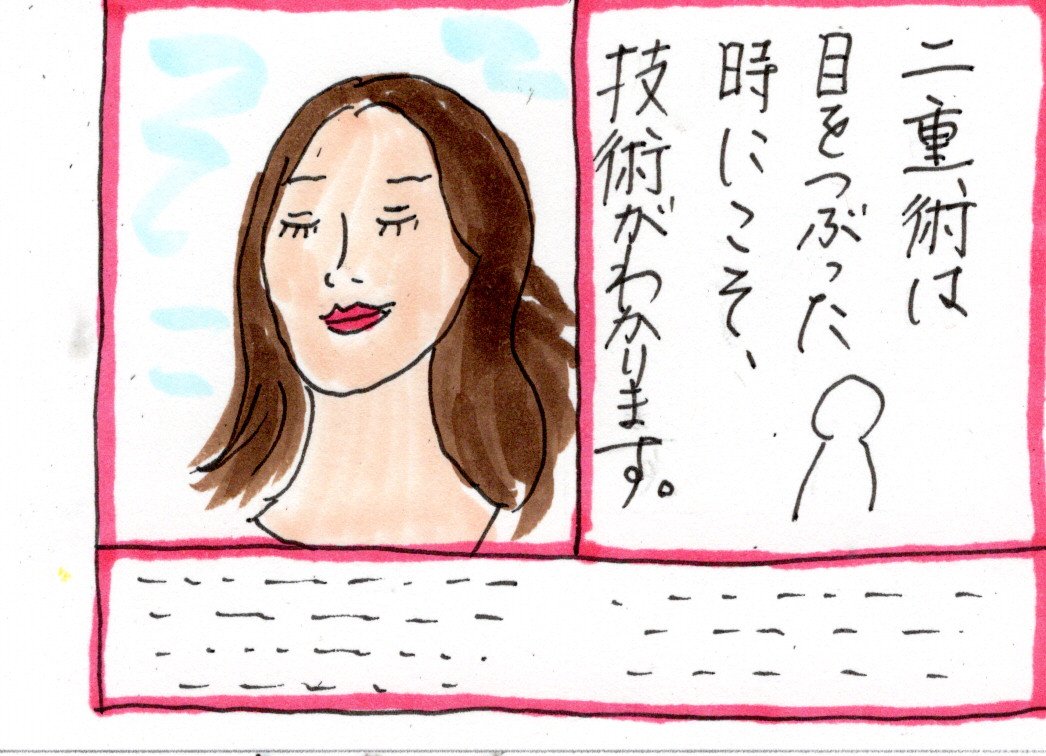 二重術は
目をつぶった
時にこそ、
技術がわかります。